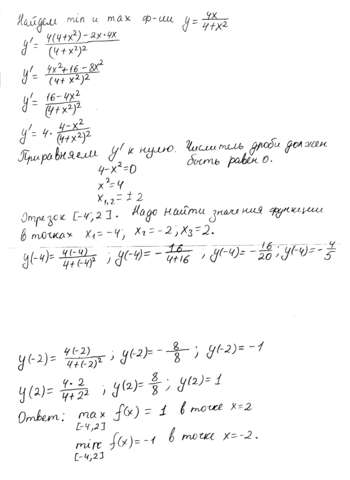 Найдем min и max ф-ии y = 4x/(4+x²)
y' = (4(4+x²)-2x·4x)/(4+x²)²
y' = (4x²+16-8x²)/(4+x²)²
y' = (16-4x²)/(4+x²)²
y' = 4·(4-x²)/(4+x²)²
Приравняем y' к нулю. Числитель дроби должен
быть равен 0.
4-x²=0
x²=4
x₁,₂=±2
Отрезок [-4,2]. Надо найти значения функции
в точках x₁=-4, x₂=-2, x₃=2.
y(-4)=4(-4)/(4+(-4)²); y(-4)=-16/(4+16), y(-4)=-16/20; y(-4)=-4/5
y(-2)=4(-2)/(4+(-2)²); y(-2)=-8/8; y(-2)=-1
y(2)=4·2/(4+2²); y(2)=8/8; y(2)=1
Ответ: max f(x)=1 в точке x=2
[-4,2]
min f(x)=-1 в точке x=-2.
[-4,2]